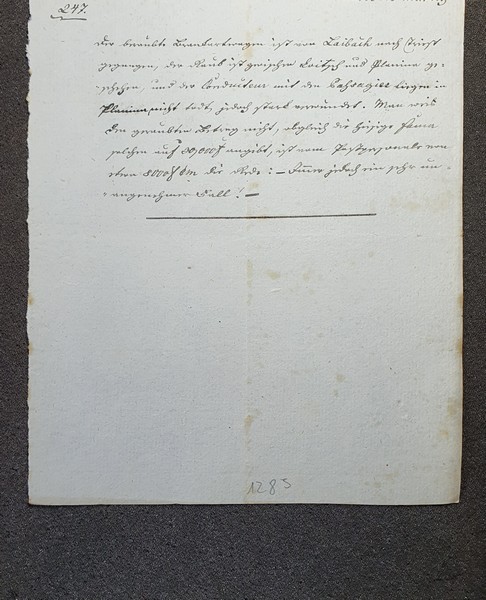 247.
Der beraubte Brankartwagen ist von Laibach nach Triest
gegangen, der Raub ist zwischen Loitsch und Planina ge-
schehen, und der Conducteur mit den Passagier liegen in
Planina, nicht todt, jedoch stark verwundet. Man weis
den geraubten Betrag nicht, obgleich die hiesige Fama
solchen auf 80,000 f angibt, ist vom Postpersonale von
etwa 8000 f die Rede: – Immer jedoch ein sehr un-
angenehmer Fall! –
1285